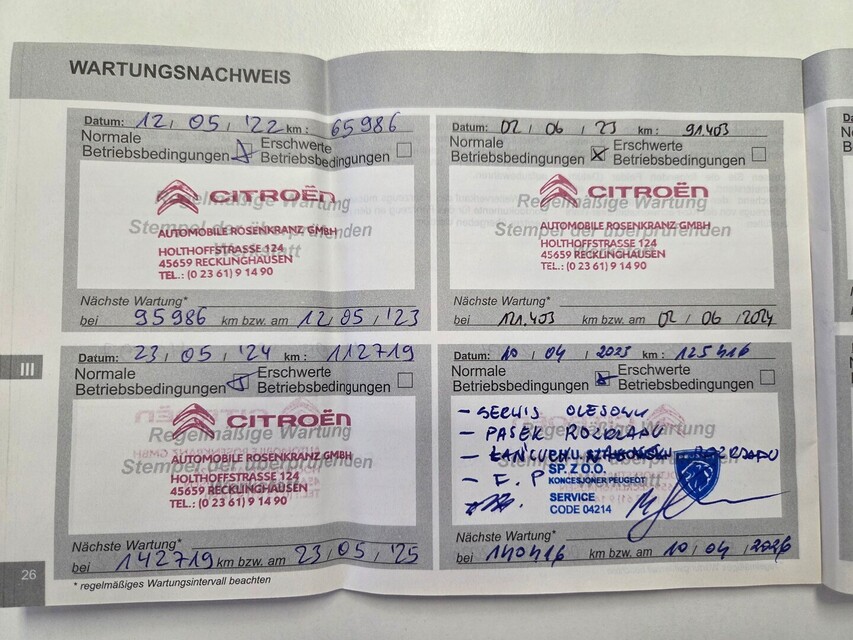 WARTUNGSNACHWEIS
Datum: 12, 05, '22 km: 65986
Normale Betriebsbedingungen
Erschwerte Betriebsbedingungen
Regelmäßige Wartung
Stempel der überprüfenden Werkstatt
CITROËN
AUTOMOBILE ROSENKRANZ GMBH
HOLTHOFFSTRASSE 124
45659 RECKLINGHAUSEN
TEL.: (0 23 61) 9 14 90
Nächste Wartung*
bei 95986 km bzw. am 12, 05, '23
Datum: 02, 06, 23 km: 91.403
Normale Betriebsbedingungen
Erschwerte Betriebsbedingungen
Regelmäßige Wartung
Stempel der überprüfenden
CITROËN
AUTOMOBILE ROSENKRANZ GMBH
HOLTHOFFSTRASSE 124
45659 RECKLINGHAUSEN
TEL.: (0 23 61) 9 14 90
Nächste Wartung*
bei 121.403 km bzw. am 02, 06, 2024
III
Datum: 23, 05, '24 km: 112719
Normale Betriebsbedingungen
Erschwerte Betriebsbedingungen
Regelmäßige Wartung
Stempel der überprüfenden
CITROËN
AUTOMOBILE ROSENKRANZ GMBH
HOLTHOFFSTRASSE 124
45659 RECKLINGHAUSEN
TEL.: (0 23 61) 9 14 90
Nächste Wartung*
bei 142719 km bzw. am 23, 05, '25
Datum: 10, 04, 2025 km: 125416
Normale Betriebsbedingungen
Erschwerte Betriebsbedingungen
Regelmäßige Wartung
Stempel der überprüfenden
- SERWIS OLEJOWY
- PASEK ROZRZĄDU
- ŁAŃCUCHU ROZRZĄDU
- F. P
SP. Z O.O.
KONCESJONER PEUGEOT
SERVICE
CODE 04214
Nächste Wartung*
bei 140416 km bzw. am 10, 04, 2026
26
* regelmäßiges Wartungsintervall beachten